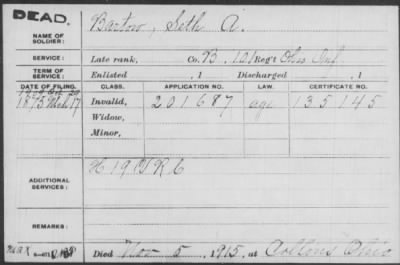 DEAD.
NAME OF SOLDIER: Bartow, Seth A.
SERVICE: Late rank, Co. B. 121 Reg't Ohio Inf.
TERM OF SERVICE: Enlisted , 1 Discharged , 1
DATE OF FILING. CLASS. APPLICATION NO. LAW. CERTIFICATE NO.
1875 Mch 17 Invalid, 201687 age 135145
Widow,
Minor,
ADDITIONAL SERVICES: H 19
REMARKS:
Died Nov 5, 1915, at Ohio